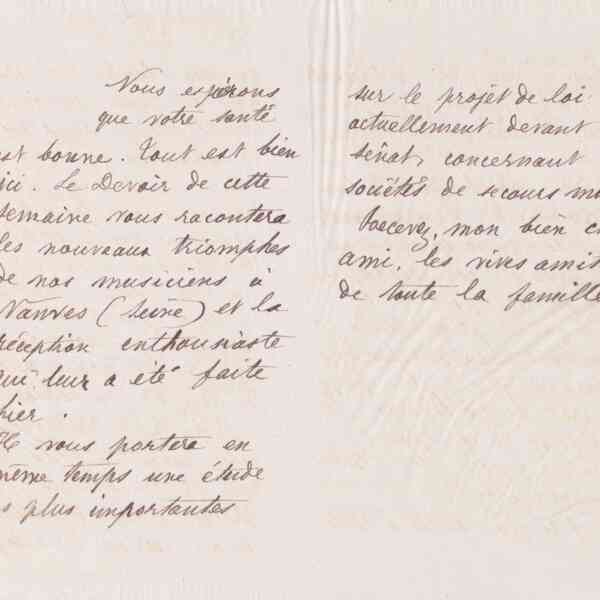 Nous espérons
que votre santé
est bonne. Tout est bien
ici. Le Devoir de cette
semaine vous racontera
les nouveaux triomphes
de nos musiciens à
Vanves (Seine) et la
réception enthousiaste
qui leur a été faite
hier.
Il vous portera en
même temps une étude
s plus importantes
sur le projet de loi
actuellement devant
sénat, concernant
sociétés de secours mu
Recevez, mon bien c
ami, les vives amis
de toute la famille